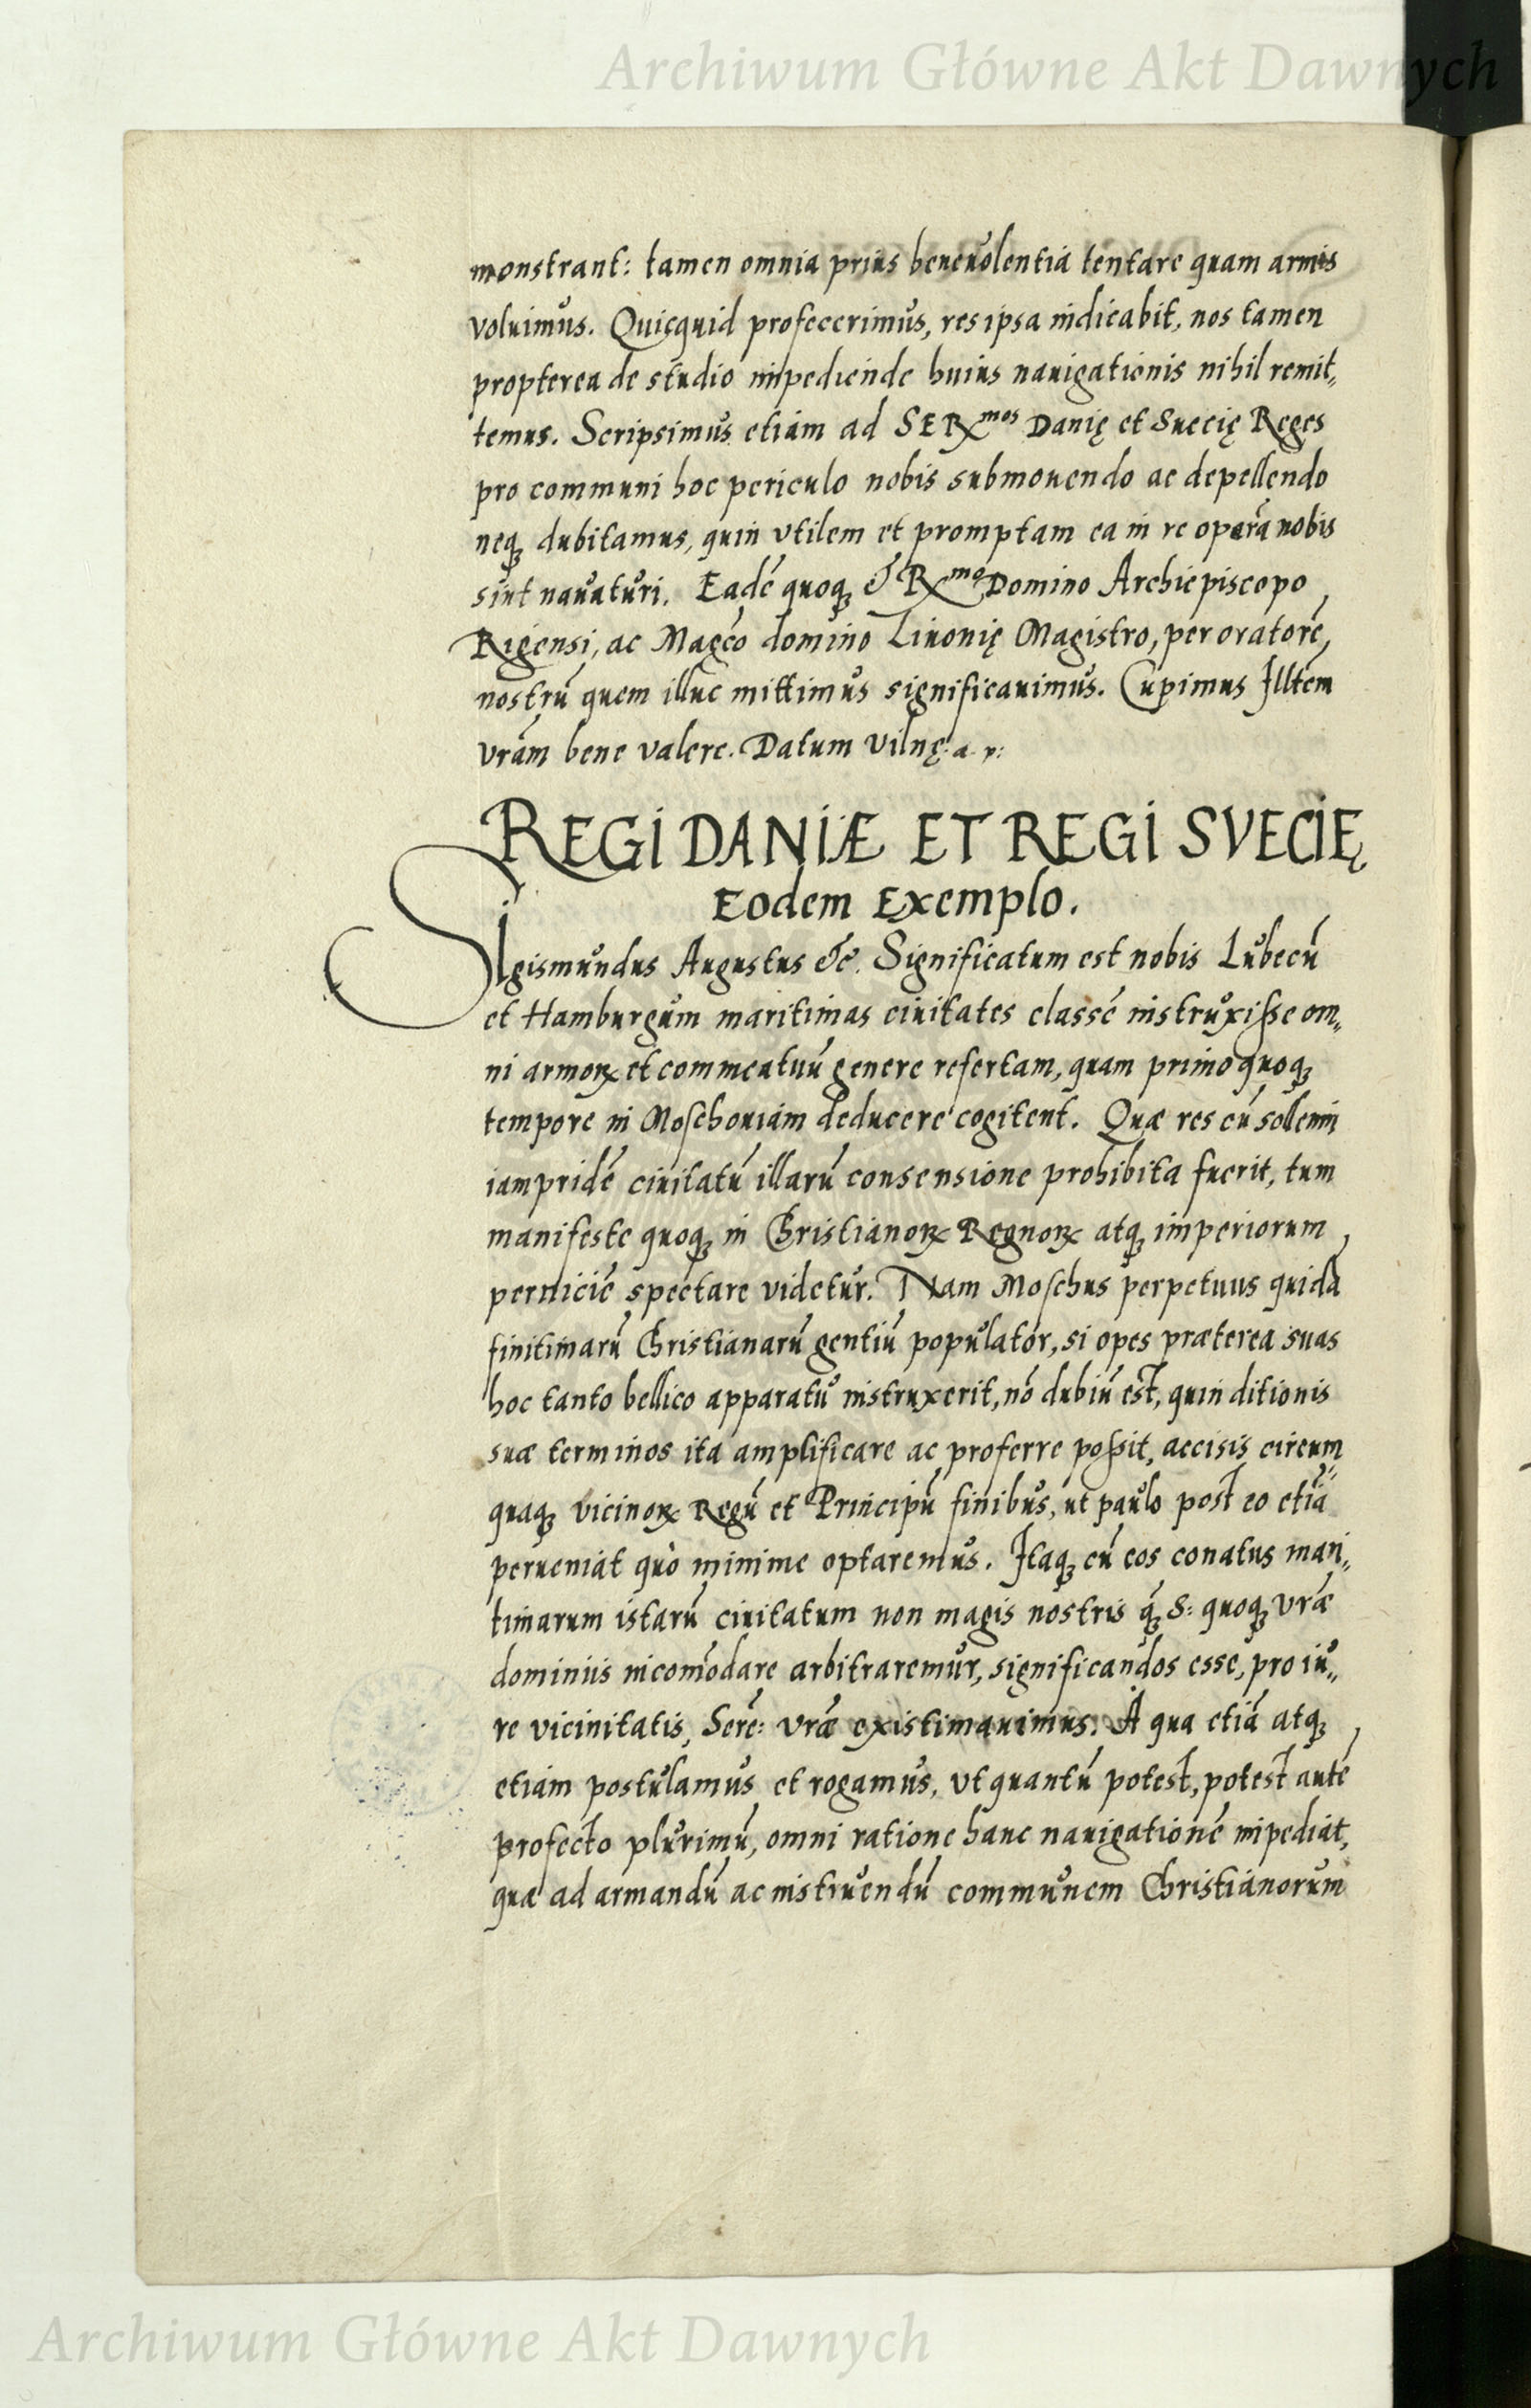 Archiwum Główne Akt Dawnych
monstrant: tamen omnia prius beneuolentia tentare quam armis
voluimus. Quicquid profecerimus, res ipsa indicabit, nos tamen
propterea de studio impediende huius nauigationis nihil remit„
temus. Scripsimus etiam ad SERmos Danię et Suecię Reges
pro communi hoc periculo nobis submouendo ac depellendo
neq; dubitamus, quin vtilem et promptam ea in re operā nobis
sint nauaturi. Eadē quoq; & Rmo Domino Archiepiscopo
Rigensi, ac Magco domino Liuonię Magistro, per oratorē
nostrū quem illuc mittimus significauimus. Cupimus Illtem
vram bene valere. Datum Vilnę. a. p:
REGI DANIÆ ET REGI SVECIĘ
Eodem Exemplo.
SIgismundus Augustus &c. Significatum est nobis Lubecū
et Hamburgum maritimas ciuitates classē instruxisse om„
ni armoꝝ et commeatuū genere refertam, quam primo quoq;
tempore in Moschouiam deducere cogitent. Quæ res cū sollemni
iampridē ciuitatū illarū consensione prohibita fuerit, tum
manifeste quoq; in Christianoꝝ Regnoꝝ atq; imperiorum
perniciē spectare videtur. Nam Moschus perpetuus quidā
finitimarū Christianarū gentiū populator, si opes præterea suas
hoc tanto bellico apparatu instruxerit, nō dubiū est, quin ditionis
suæ terminos ita amplificare ac proferre possit, accisis circum„
quaq; vicinoꝝ Regū et Principū finibus, ut paulo post eo etiā
perueniat quò minime optaremus. Itaq; cū eos conatus mari„
timarum istarū ciuitatum non magis nostris q̄; S: quoq; vræ
dominiis incomodare arbitraremur, significandos esse, pro iu„
re vicinitatis, Serē: vræ existimauimus. A qua etiā atq;
etiam postulamus et rogamus, vt quantū potest, potest autē
profecto plurimū, omni ratione hanc nauigationē impediat,
quæ ad armandū ac instruendū communem Christianorum
Archiwum Główne Akt Dawnych